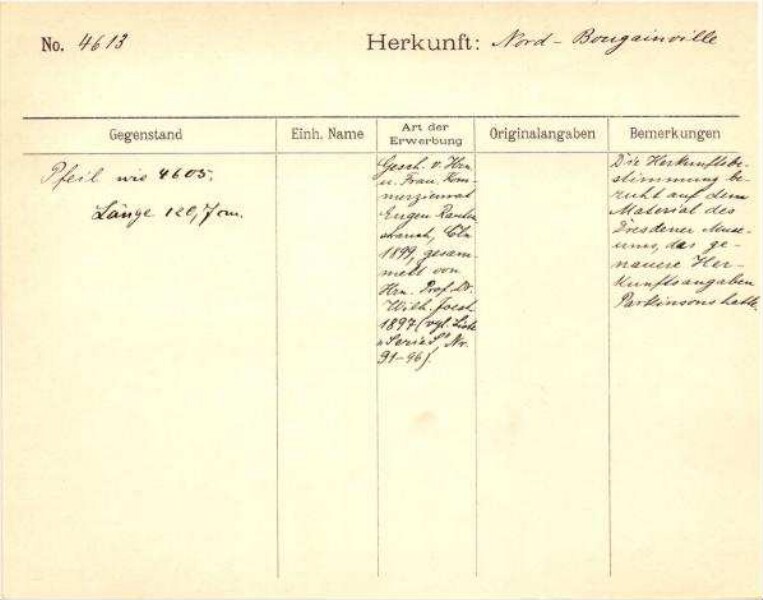 No. 4613
Herkunft: Nord-Bougainville
Gegenstand
Einh. Name
Art der
Erwerbung
Originalangaben
Bemerkungen
Pfeil wie 4605.
Länge 120,7 cm.
Gesch. v. Hrn
u. Frau Kom-
merzienrat
Eugen Rauten-
strauch, Cln
1899, gesam-
melt von
Hrn. Prof. Dr.
Wilh. Joest
1897 (vgl. Liste
"Serie S" Nr.
91-96).
Die Herkunftsbe-
stimmung be-
ruht auf dem
Material des
Dresdener Muse-
ums, das ge-
nauere Her-
kunftsangaben
Parkinsons hatte.